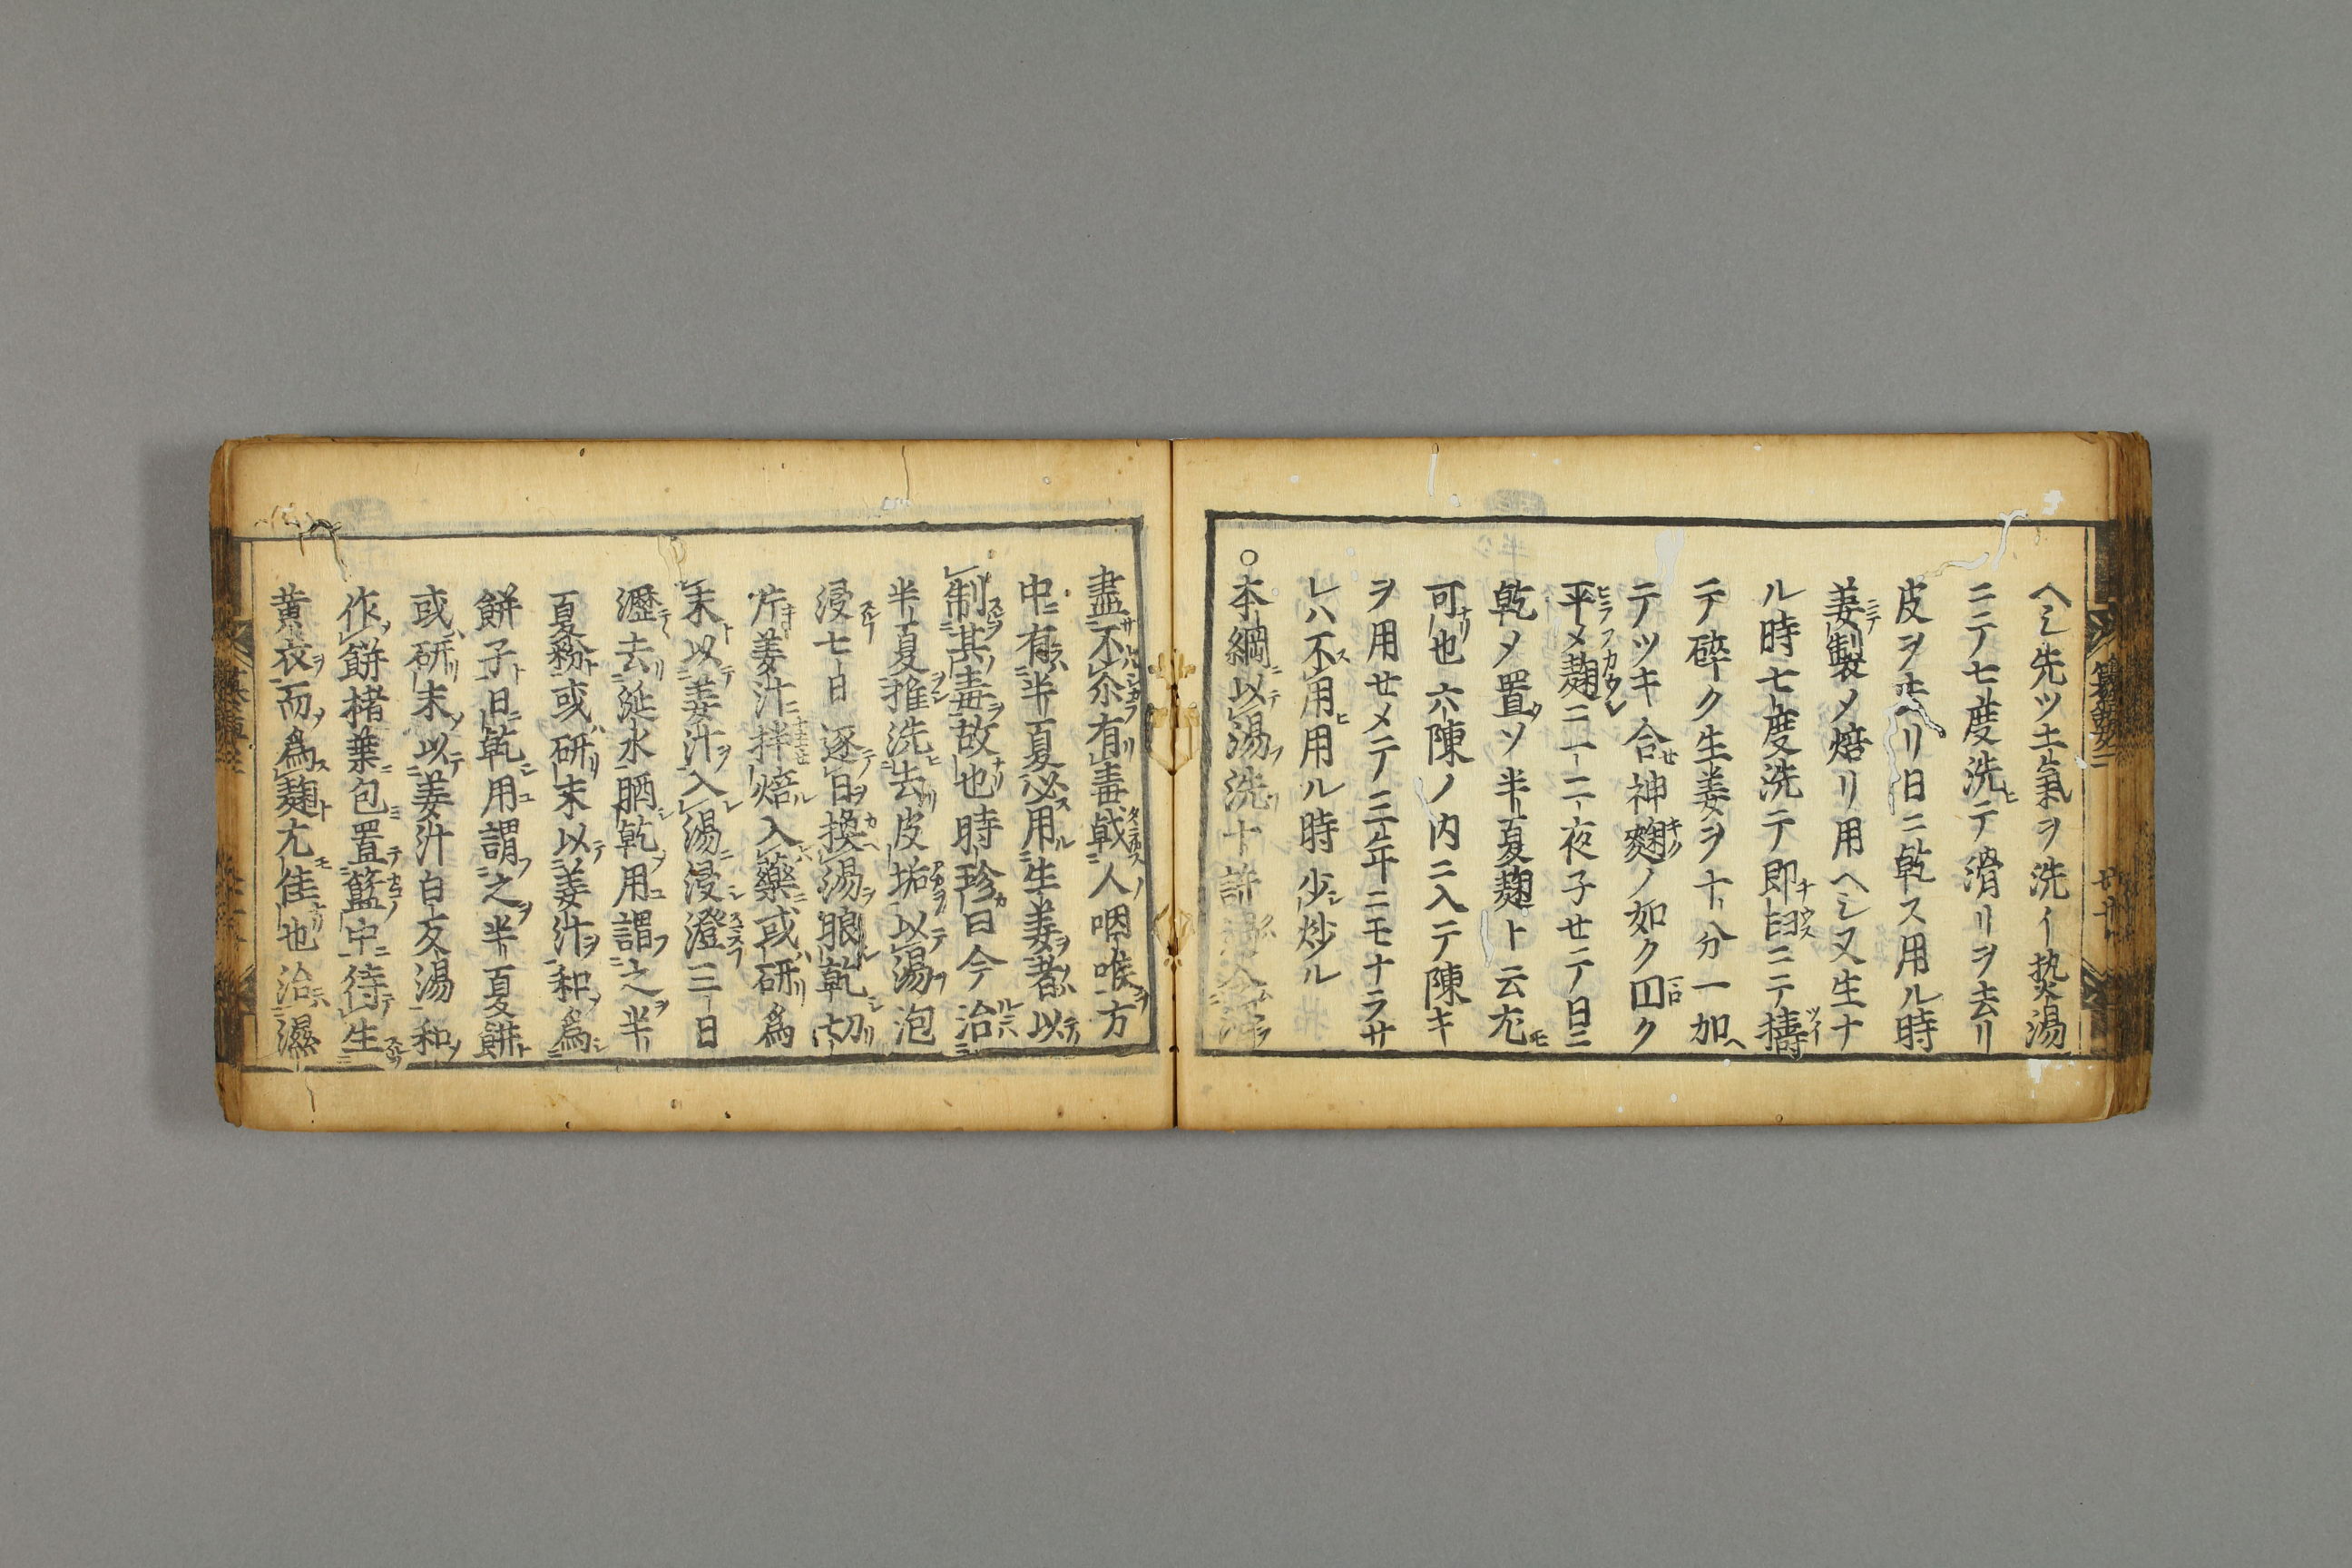 ヘシ先ツ土氣ヲ洗イ𤍠湯
ニテ七度洗テ滑リヲ去リ
皮ヲ去ヘリ日ニ乾ス用ル時
姜製メ焙リ用ヘシ又生ナ
ル時七度洗テ即臼ニテ擣
テ碎ク生姜ヲ十分一加
テツキ合神麴ノ如ク四ク
平メ麹ニ一二夜子セテ日ニ
乾メ置ソ半夏麹ト云尤
可也六陳ノ内ニ入テ陳キ
ヲ用せメテ三年ニモナラサ
レハ不用用ル時少炒ル
○本綱以湯洗十許
盡不尒有毒戟人咽喉方
中有半夏必用生姜者以
制其毒故也時珍曰今治
半夏推洗去皮垢以湯泡
浸七日逐日換湯眼乾切
片姜汁拌焙入藥或研為
末以姜汁入湯浸澄三日
瀝去涎水晒乾用謂之半
夏粉或研末以姜汁和為
餅子日乾用謂之半夏餅
或研末以姜汁白友湯和
作餅楮葉包置籃中待生
黄衣而為麹尤佳也治濕